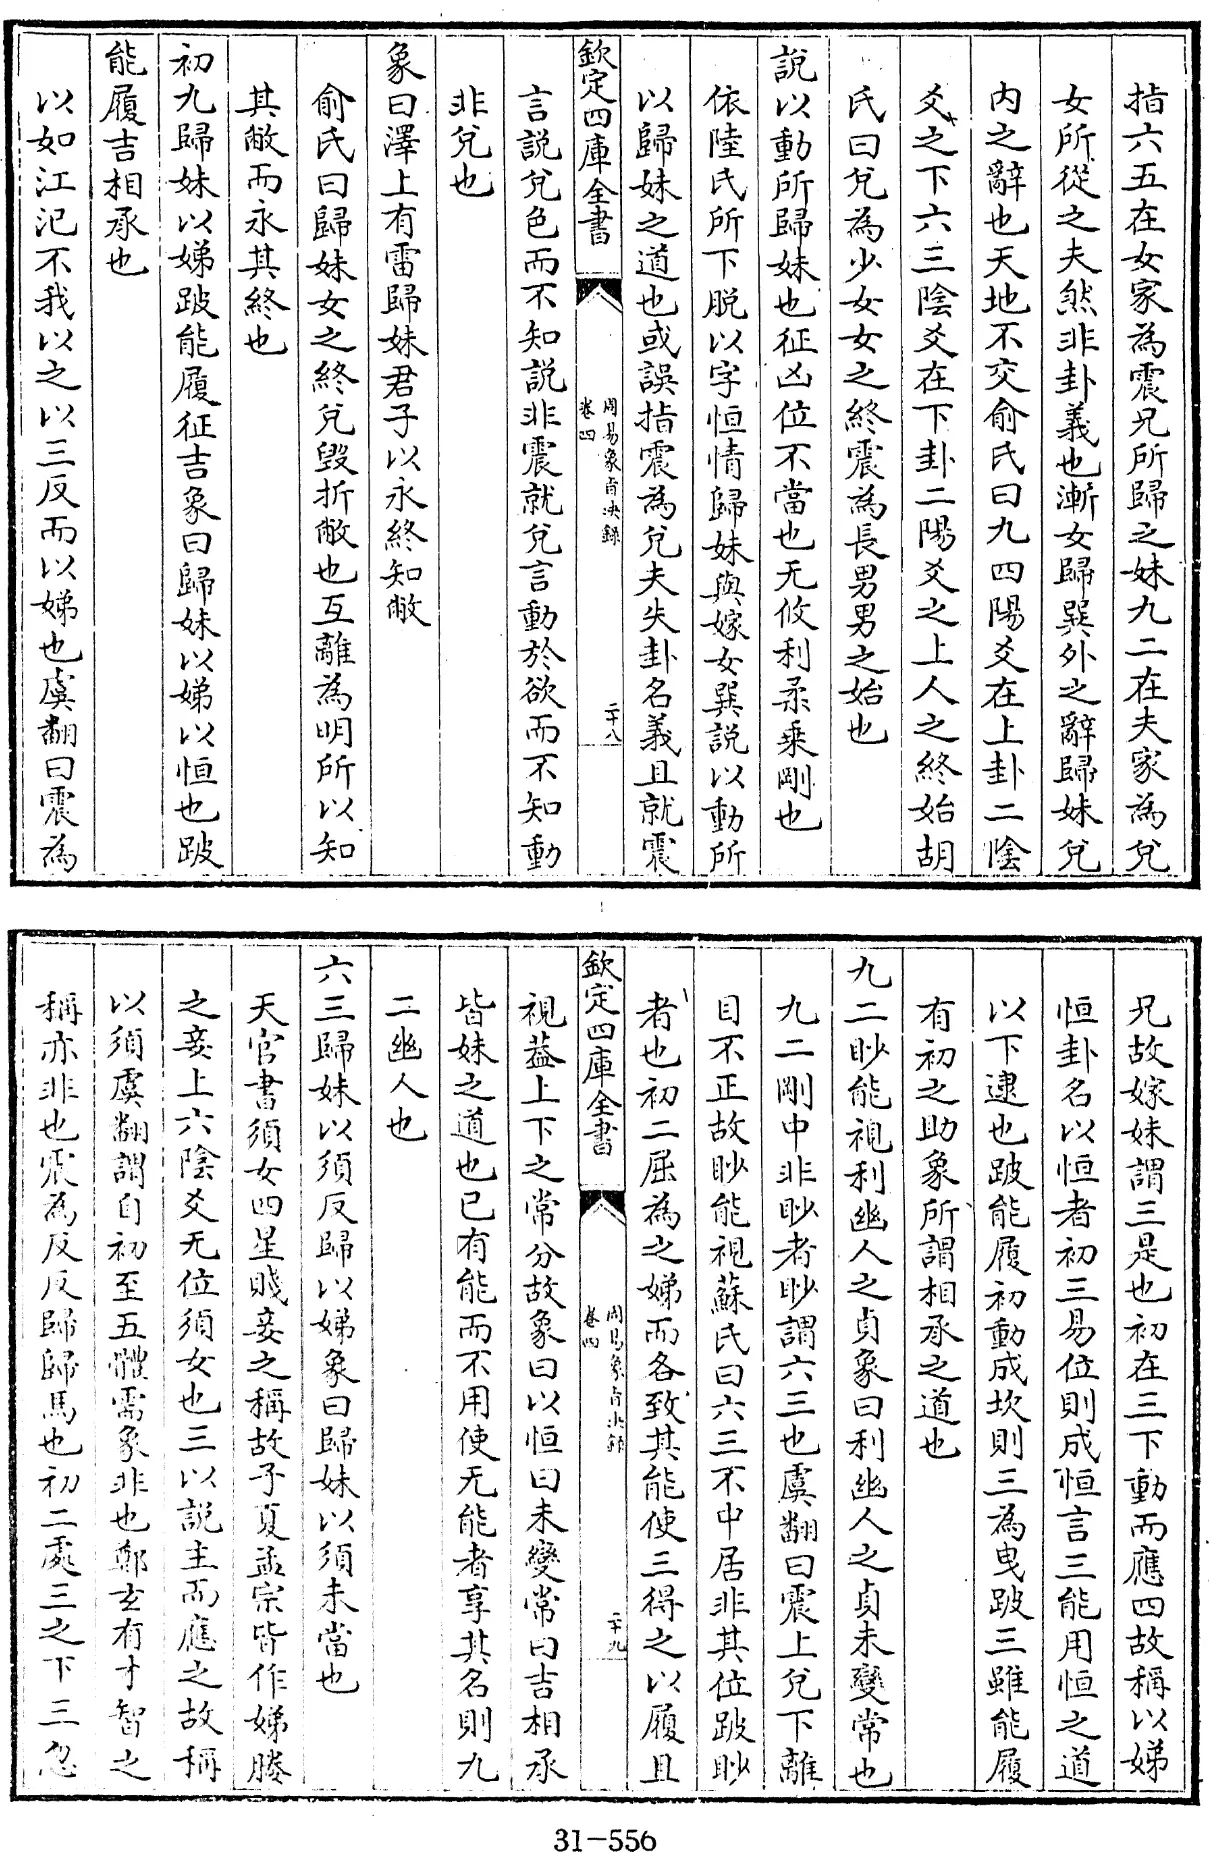 指六五在女家為震兄所歸之妹九二在夫家為兌
女所從之夫然非卦義也漸女歸巽外之辭歸妹兌
內之辭也天地不交俞氏曰九四陽爻在上卦二陰
爻之下六三陰爻在下卦二陽爻之上人之終始胡
氏曰兌為少女女之終震為長男男之始也
說以動所歸妹也征凶位不當也无攸利柔乗剛也
依陸氏所下脫以字恒情歸妹與嫁女巽説以動所
以歸妹之道也或誤指震為兌夫失卦名義且就震
欽定四庫全書
周易象旨決録
卷四
二十八
言説兌色而不知説非震就兌言動於欲而不知動
非兌也
象曰澤上有雷歸妹君子以永終知敝
俞氏曰歸妹女之終兌毀折敝也互離為明所以知
其敝而永其終也
初九歸妹以娣跛能履征吉象曰歸妹以娣以恒也跛
能履吉相承也
以如江汜不我以之以三反而以娣也虞翻曰震為
兄故嫁妹謂三是也初在三下動而應四故稱以娣
恒卦名以恒者初三易位則成恒言三能用恒之道
以下逮也跛能履初動成坎則三為曳跛三雖能履
有初之助象所謂相承之道也
九二眇能視利幽人之貞象曰利幽人之貞未變常也
九二剛中非眇者眇謂六三也虞翻曰震上兌下離
目不正故眇能視蘇氏曰六三不中居非其位跛眇
者也初二屈為之娣而各致其能使三得之以履且
欽定四庫全書
周易象旨決録
卷四
二十九
視葢上下之常分故象曰以恒曰未變常曰吉相承
皆妹之道也已有能而不用使无能者享其名則九
二幽人也
六三歸妹以須反歸以娣象曰歸妹以須未當也
天官書須女四星賤妾之稱故子夏孟宗皆作娣媵
之妾上六陰爻无位須女也三以説主而應之故稱
以須虞翻謂自初至五體需象非也鄭玄有才智之
稱亦非也震為反反歸歸馬也初二處三之下三忽
31-556